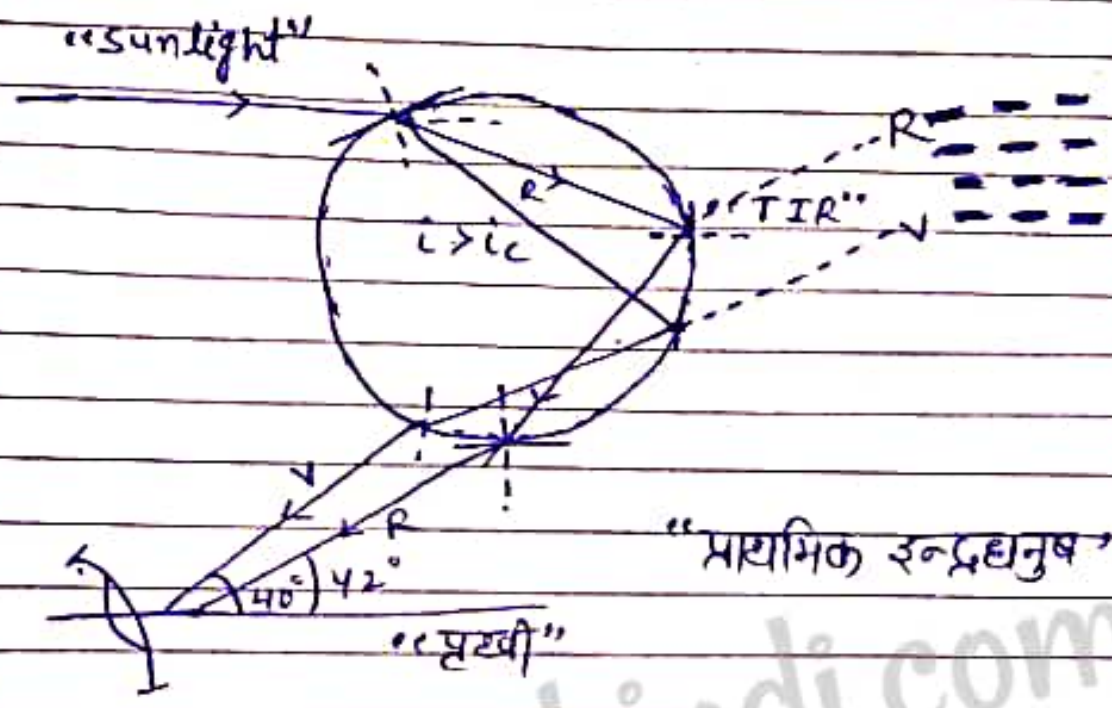 "Sunlight"
R
R
"TIR"
i > ic
V
V
R
40° 42°
"प्राथमिक इन्द्रधनुष"
"पृथ्वी"
hindi.com